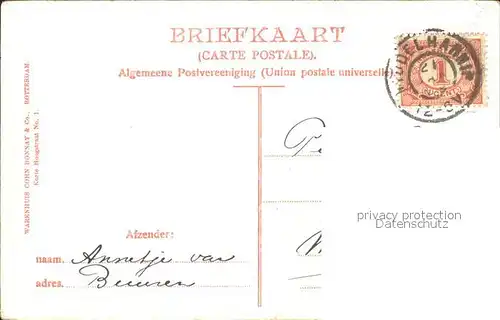 BRIEFKAART
(CARTE POSTALE).
Algemeene Postvereeniging (Union postale universelle).
1
CENT
12-6
privacy protection
Datenschutz
WARENHUIS CORN BONNAY & Co., ROTTERDAM.
Korte Hoogstraat No. 1.
Afzender:
naam. Annetje van
adres. Beuren